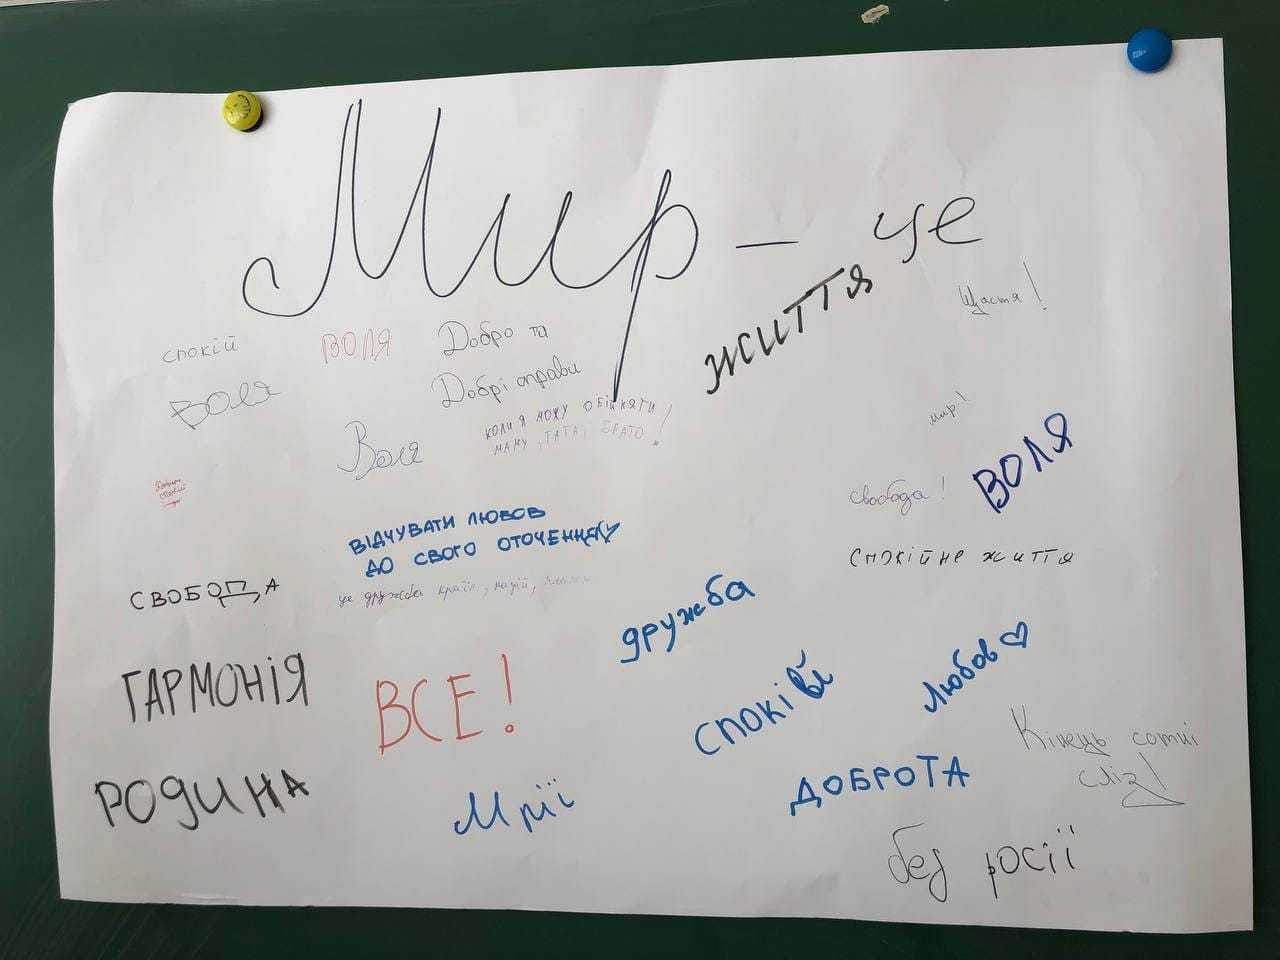 Мир – це
життя
Щастя!
спокій
ВОЛЯ
Добро та
Добрі справи
ВОЛЯ
Воля
КОЛИ Я МОЖУ ОБІЙНЯТИ
МАМУ, ТАТА, БРАТО!
мир!
ВОЛЯ
свобода!
спокій
ВІДЧУВАТИ ЛЮБОВ
ДО СВОГО ОТОЧЕННЯ
Спокійне життя
СВОБОДА
це дружба країн, націй,
дружба
ГАРМОНІЯ
ВСЕ!
Любов
спокій
Кінець сотні
сліз!
РОДИНА
Мрії
ДОБРОТА
без росії